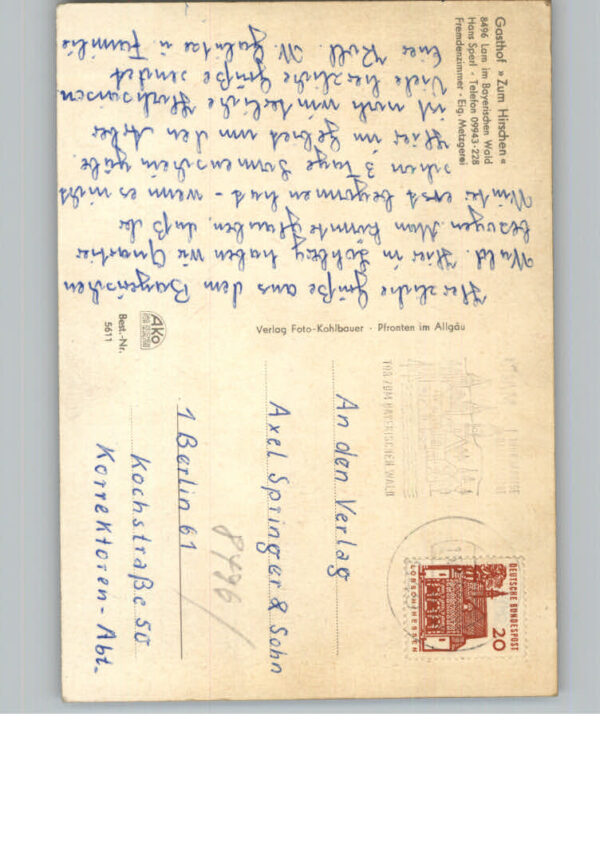 Gasthof » Zum Hirschen «
8496 Lam im Bayerischen Wald
Hans Sperl · Telefon 09943-228
Fremdenzimmer · Eig. Metzgerei
Herzliche Grüße aus dem Bayerischen
Wald. Hier in haben wir Quartier
bezogen. Man könnte glauben, daß der
Winter erst begonnen hat - wenn es nicht
schon 3 Tage Sonnenschein gäbe.
Hier im Gebiet um den Arber
ist noch winterliche
Viele herzliche Grüße sendet
Euer Koll. W. u Familie
Verlag Foto-Kohlbauer · Pfronten im Allgäu
AKO
Best.-Nr.
5611
TOR ZUM BAYERISCHEN WALD
DEUTSCHE BUNDESPOST
20
LORSCH/HESSEN
An den Verlag
Axel Springer & Sohn
1 Berlin 61
Kochstraße 50
Korrektoren-Abt.
8496/